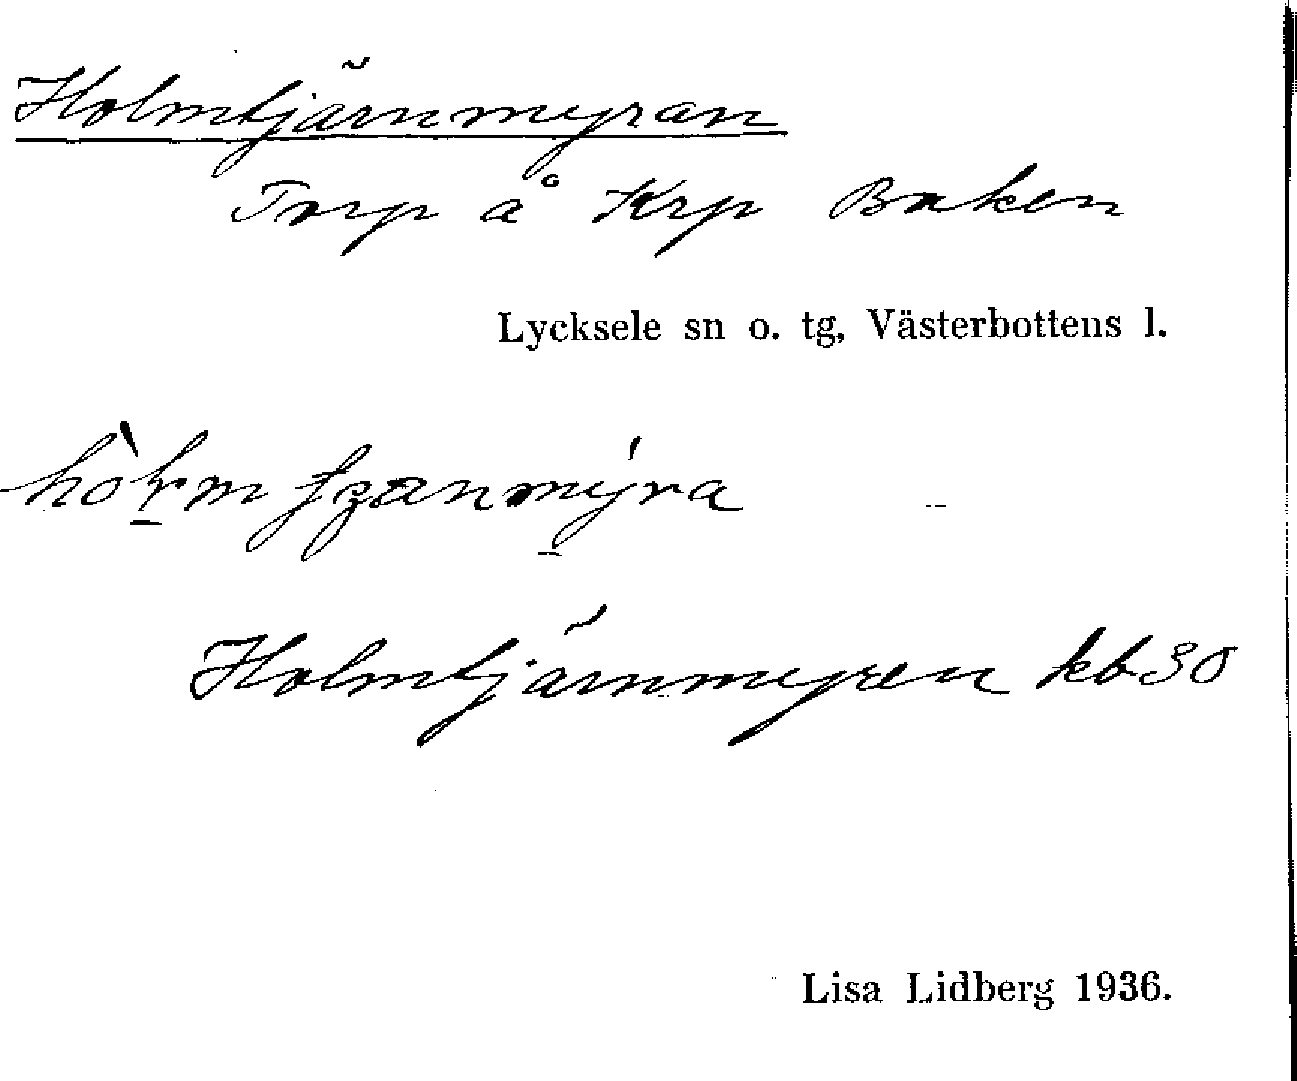 Holmtjärnmyran
Torp å Krp Boken
Lycksele sn o. tg, Västerbottens l.
Holmtjärnmyren kb 30
Lisa Lidberg 1936.